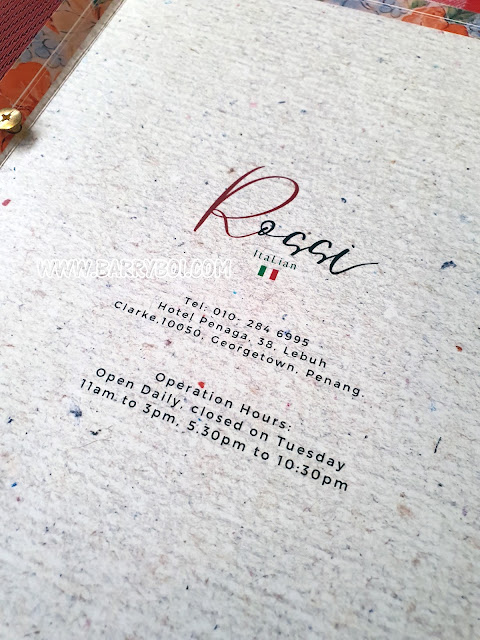 Rossi
Italian
WWW.BARRYBOI.COM
Tel: 010- 284 6995
Hotel Penaga, 38, Lebuh
Clarke,10050, Georgetown, Penang.
Operation Hours:
Open Daily, closed on Tuesday
11am to 3pm, 5.30pm to 10:30pm